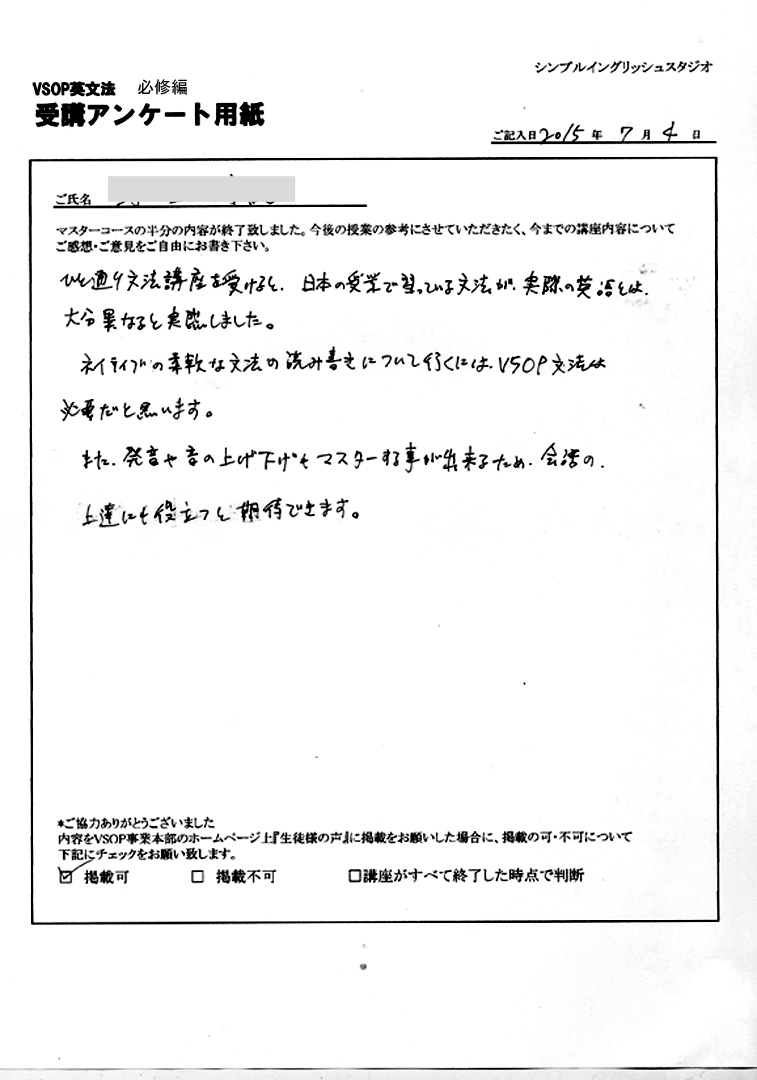 シンプルイングリッシュスタジオ
VSOP英文法 必修編
受講アンケート用紙
ご記入日2015年 7月 4日
ご氏名
マスターコースの半分の内容が終了致しました。今後の授業の参考にさせていただきたく、今までの講座内容について
ご感想・ご意見をご自由にお書き下さい。
ひと通り文法講座を受けると、日本の授業で習っている文法が、実際の英語とは、
大分異なると実感しました。
ネイティブの柔軟な文法の読み書きについて行くには、VSOP文法は
必要だと思います。
また、発音や音の上げ下げもマスターする事が出来るため、会話の、
上達にも役立つと期待できます。
*ご協力ありがとうございました
内容をVSOP事業本部のホームページ上『生徒様の声』に掲載をお願いした場合に、掲載の可・不可について
下記にチェックをお願い致します。
☑ 掲載可 □ 掲載不可 □講座がすべて終了した時点で判断